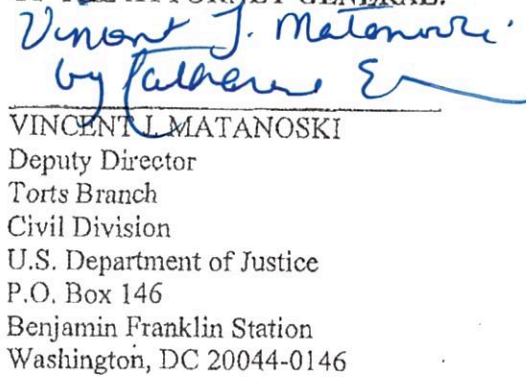 ATTORNEY GENERAL:
Vincent J. Matanoski
by Catharine E
VINCENT J. MATANOSKI
Deputy Director
Torts Branch
Civil Division
U.S. Department of Justice
P.O. Box 146
Benjamin Franklin Station
Washington, DC 20044-0146